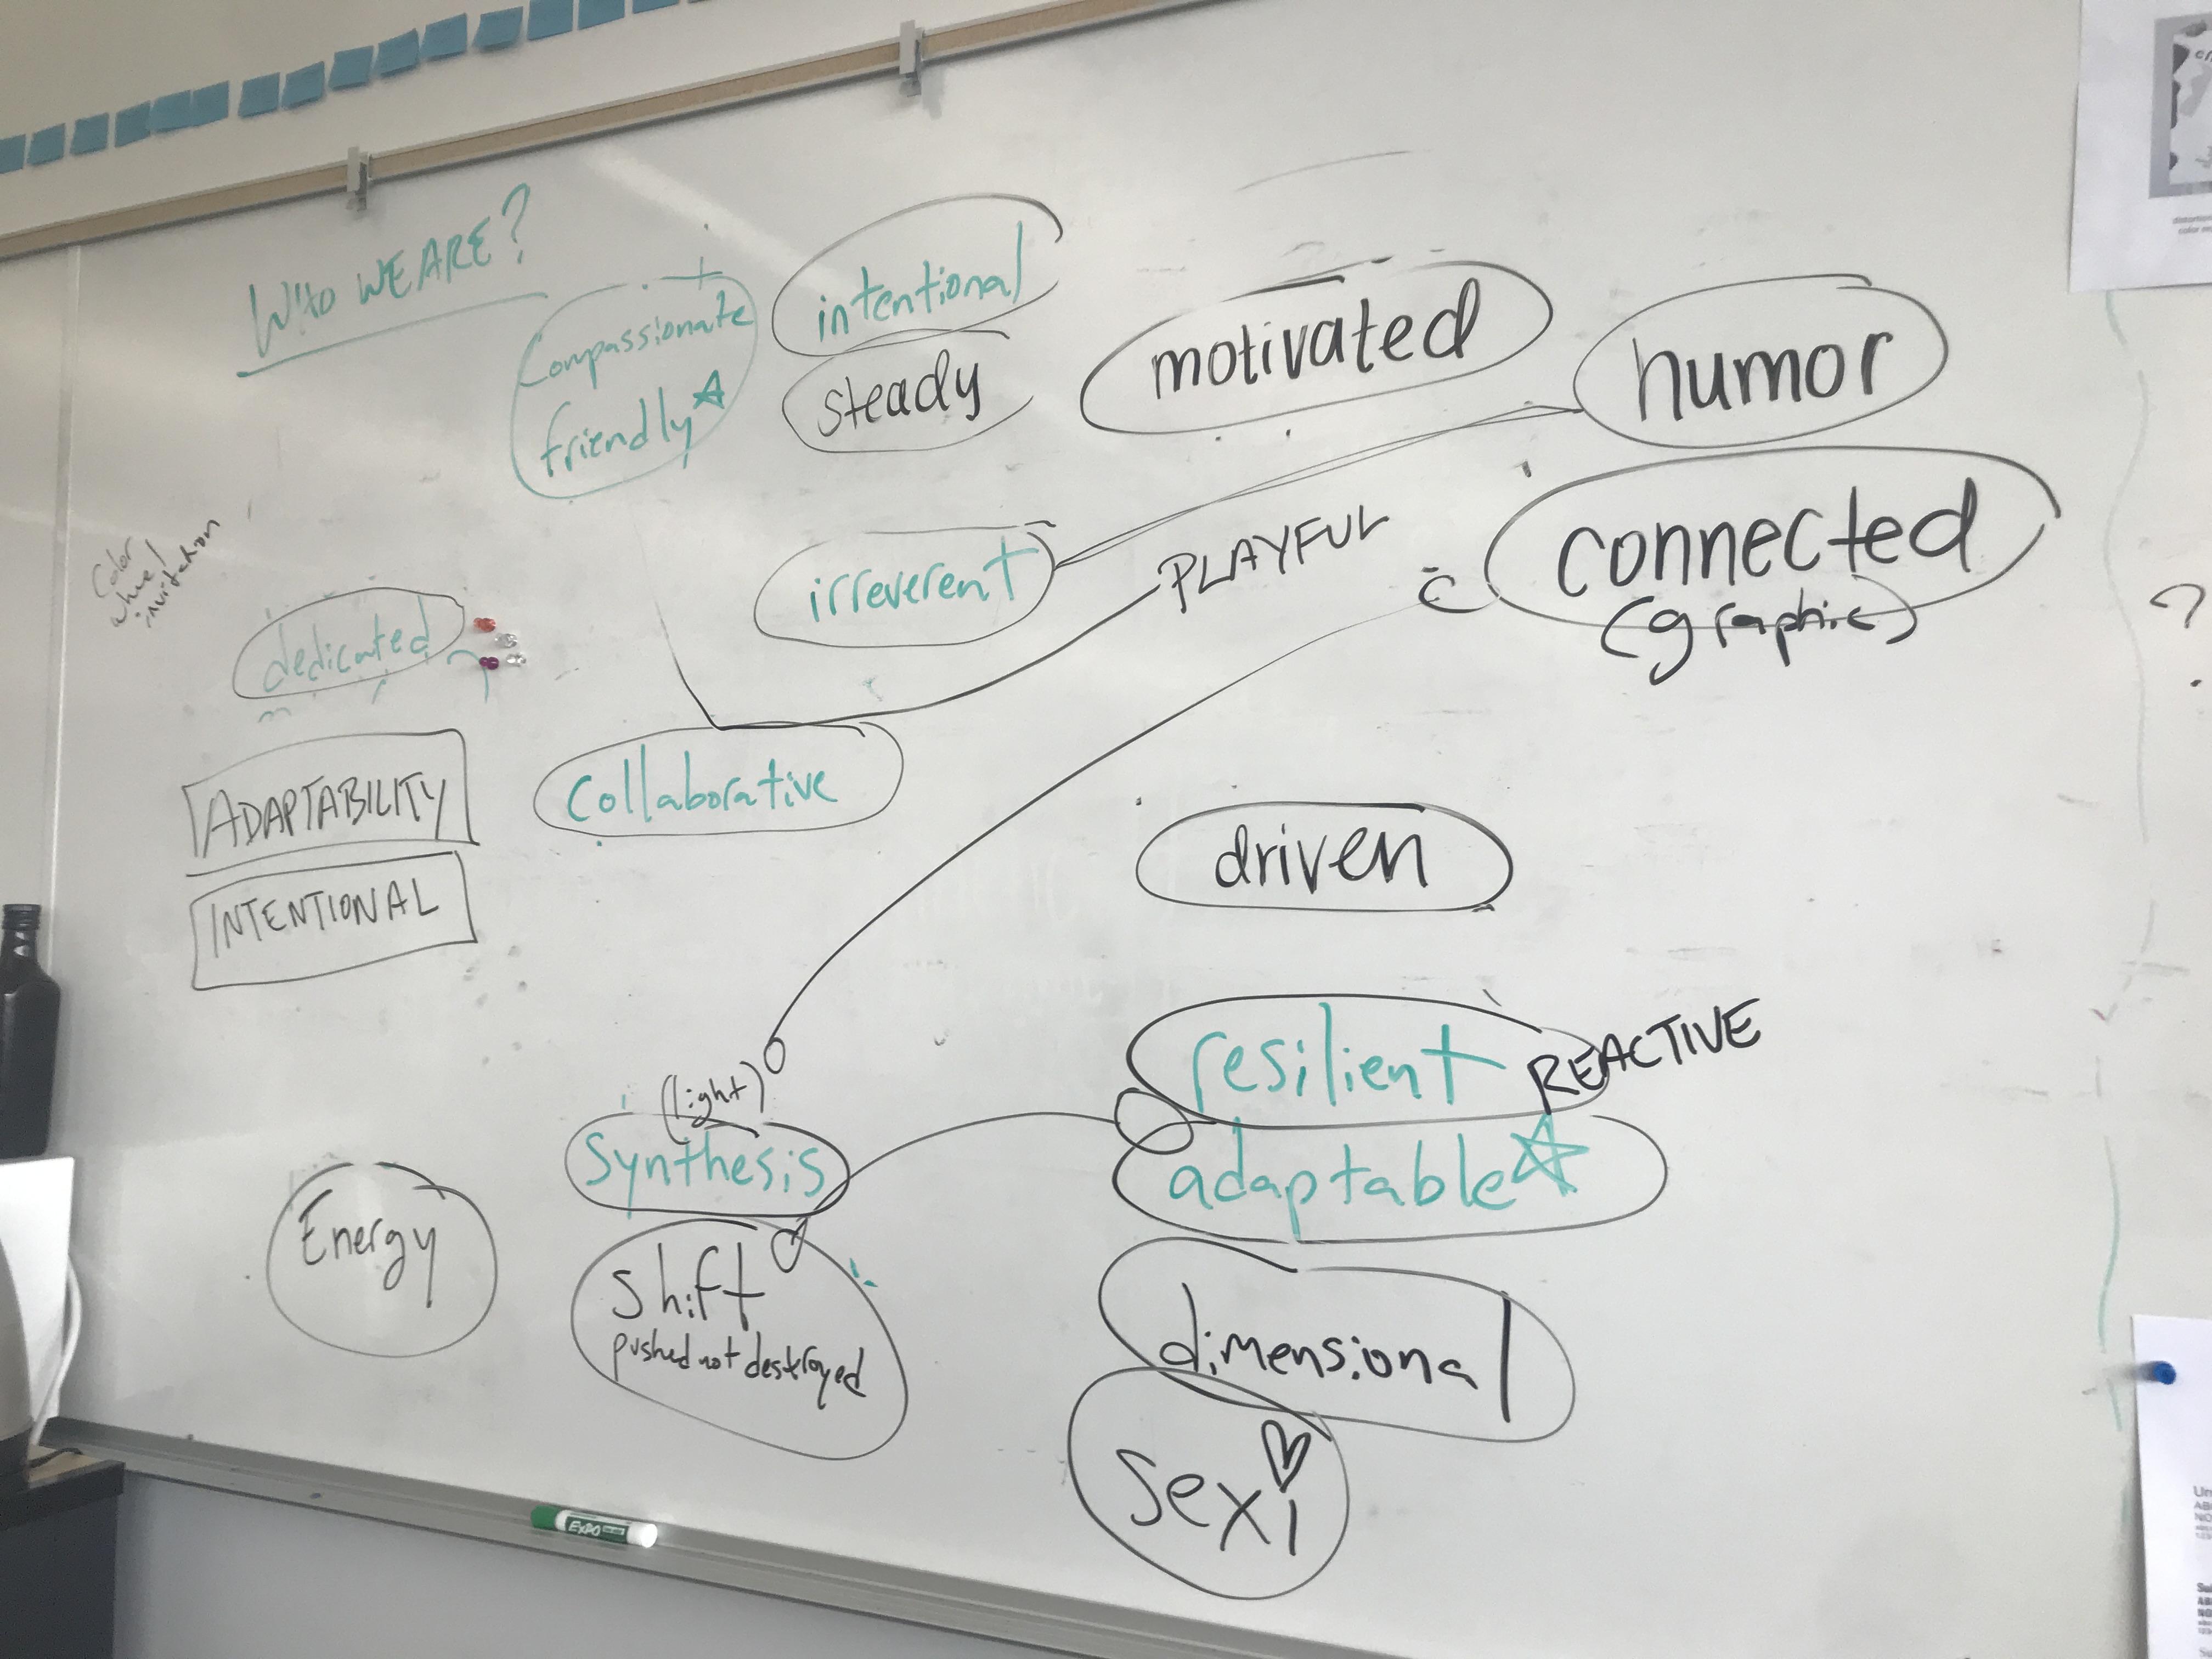 WHO WE ARE?
Compassionate +
friendly
intentional
steady
motivated
humor
connected
(graphic)
irreverent
PLAYFUL
Color
wheel
invitation
dedicated
ADAPTABILITY
INTENTIONAL
Collaborative
driven
resilient
REACTIVE
adaptable
(light)
Synthesis
Energy
Shift
pushed not destroyed
dimensional
sexi
EXPO
?